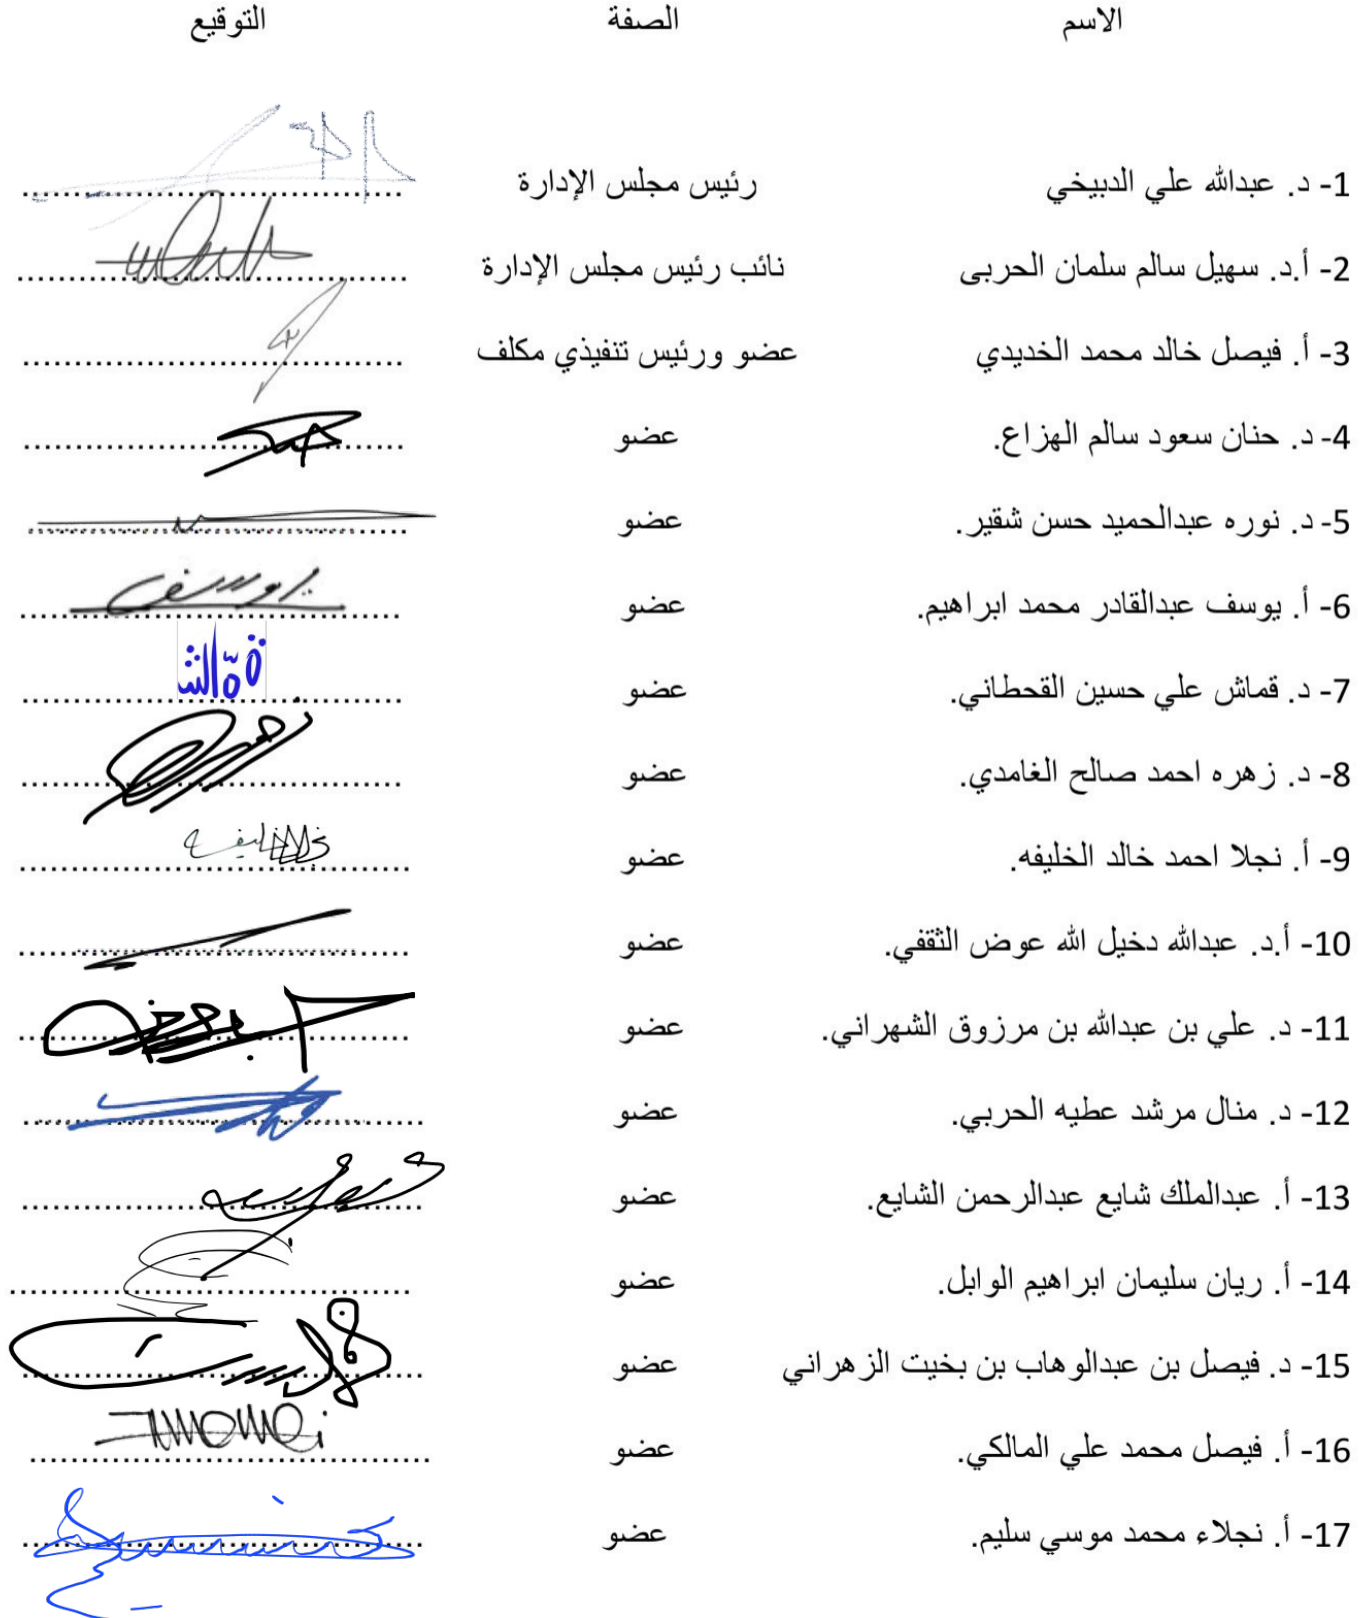 الاسم الصفة التوقيع
1- د. عبدالله علي الدبيخي رئيس مجلس الإدارة
2- أ.د. سهيل سالم سلمان الحربى نائب رئيس مجلس الإدارة
3- أ. فيصل خالد محمد الخديدي عضو ورئيس تنفيذي مكلف
4- د. حنان سعود سالم الهزاع. عضو
5- د. نوره عبدالحميد حسن شقير. عضو
6- أ. يوسف عبدالقادر محمد ابراهيم. عضو يوسف
7- د. قماش علي حسين القحطاني. عضو
8- د. زهره احمد صالح الغامدي. عضو
9- أ. نجلا احمد خالد الخليفه. عضو
10- أ.د. عبدالله دخيل الله عوض الثقفي. عضو
11- د. علي بن عبدالله بن مرزوق الشهراني. عضو
12- د. منال مرشد عطيه الحربي. عضو
13- أ. عبدالملك شايع عبدالرحمن الشايع. عضو
14- أ. ريان سليمان ابراهيم الوابل. عضو
15- د. فيصل بن عبدالوهاب بن بخيت الزهراني عضو
16- أ. فيصل محمد علي المالكي. عضو
17- أ. نجلاء محمد موسي سليم. عضو